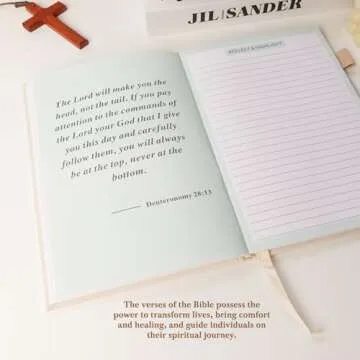 JIL SANDER
The Lord will make you the
head, not the tail. If you pay
attention to the commands of
the Lord your God that I give
you this day and carefully
follow them, you will always
be at the top, never at the
bottom.
Deuteronomy 28:13
The verses of the Bible possess the
power to transform lives, bring comfort
and healing, and guide individuals on
their spiritual journey.